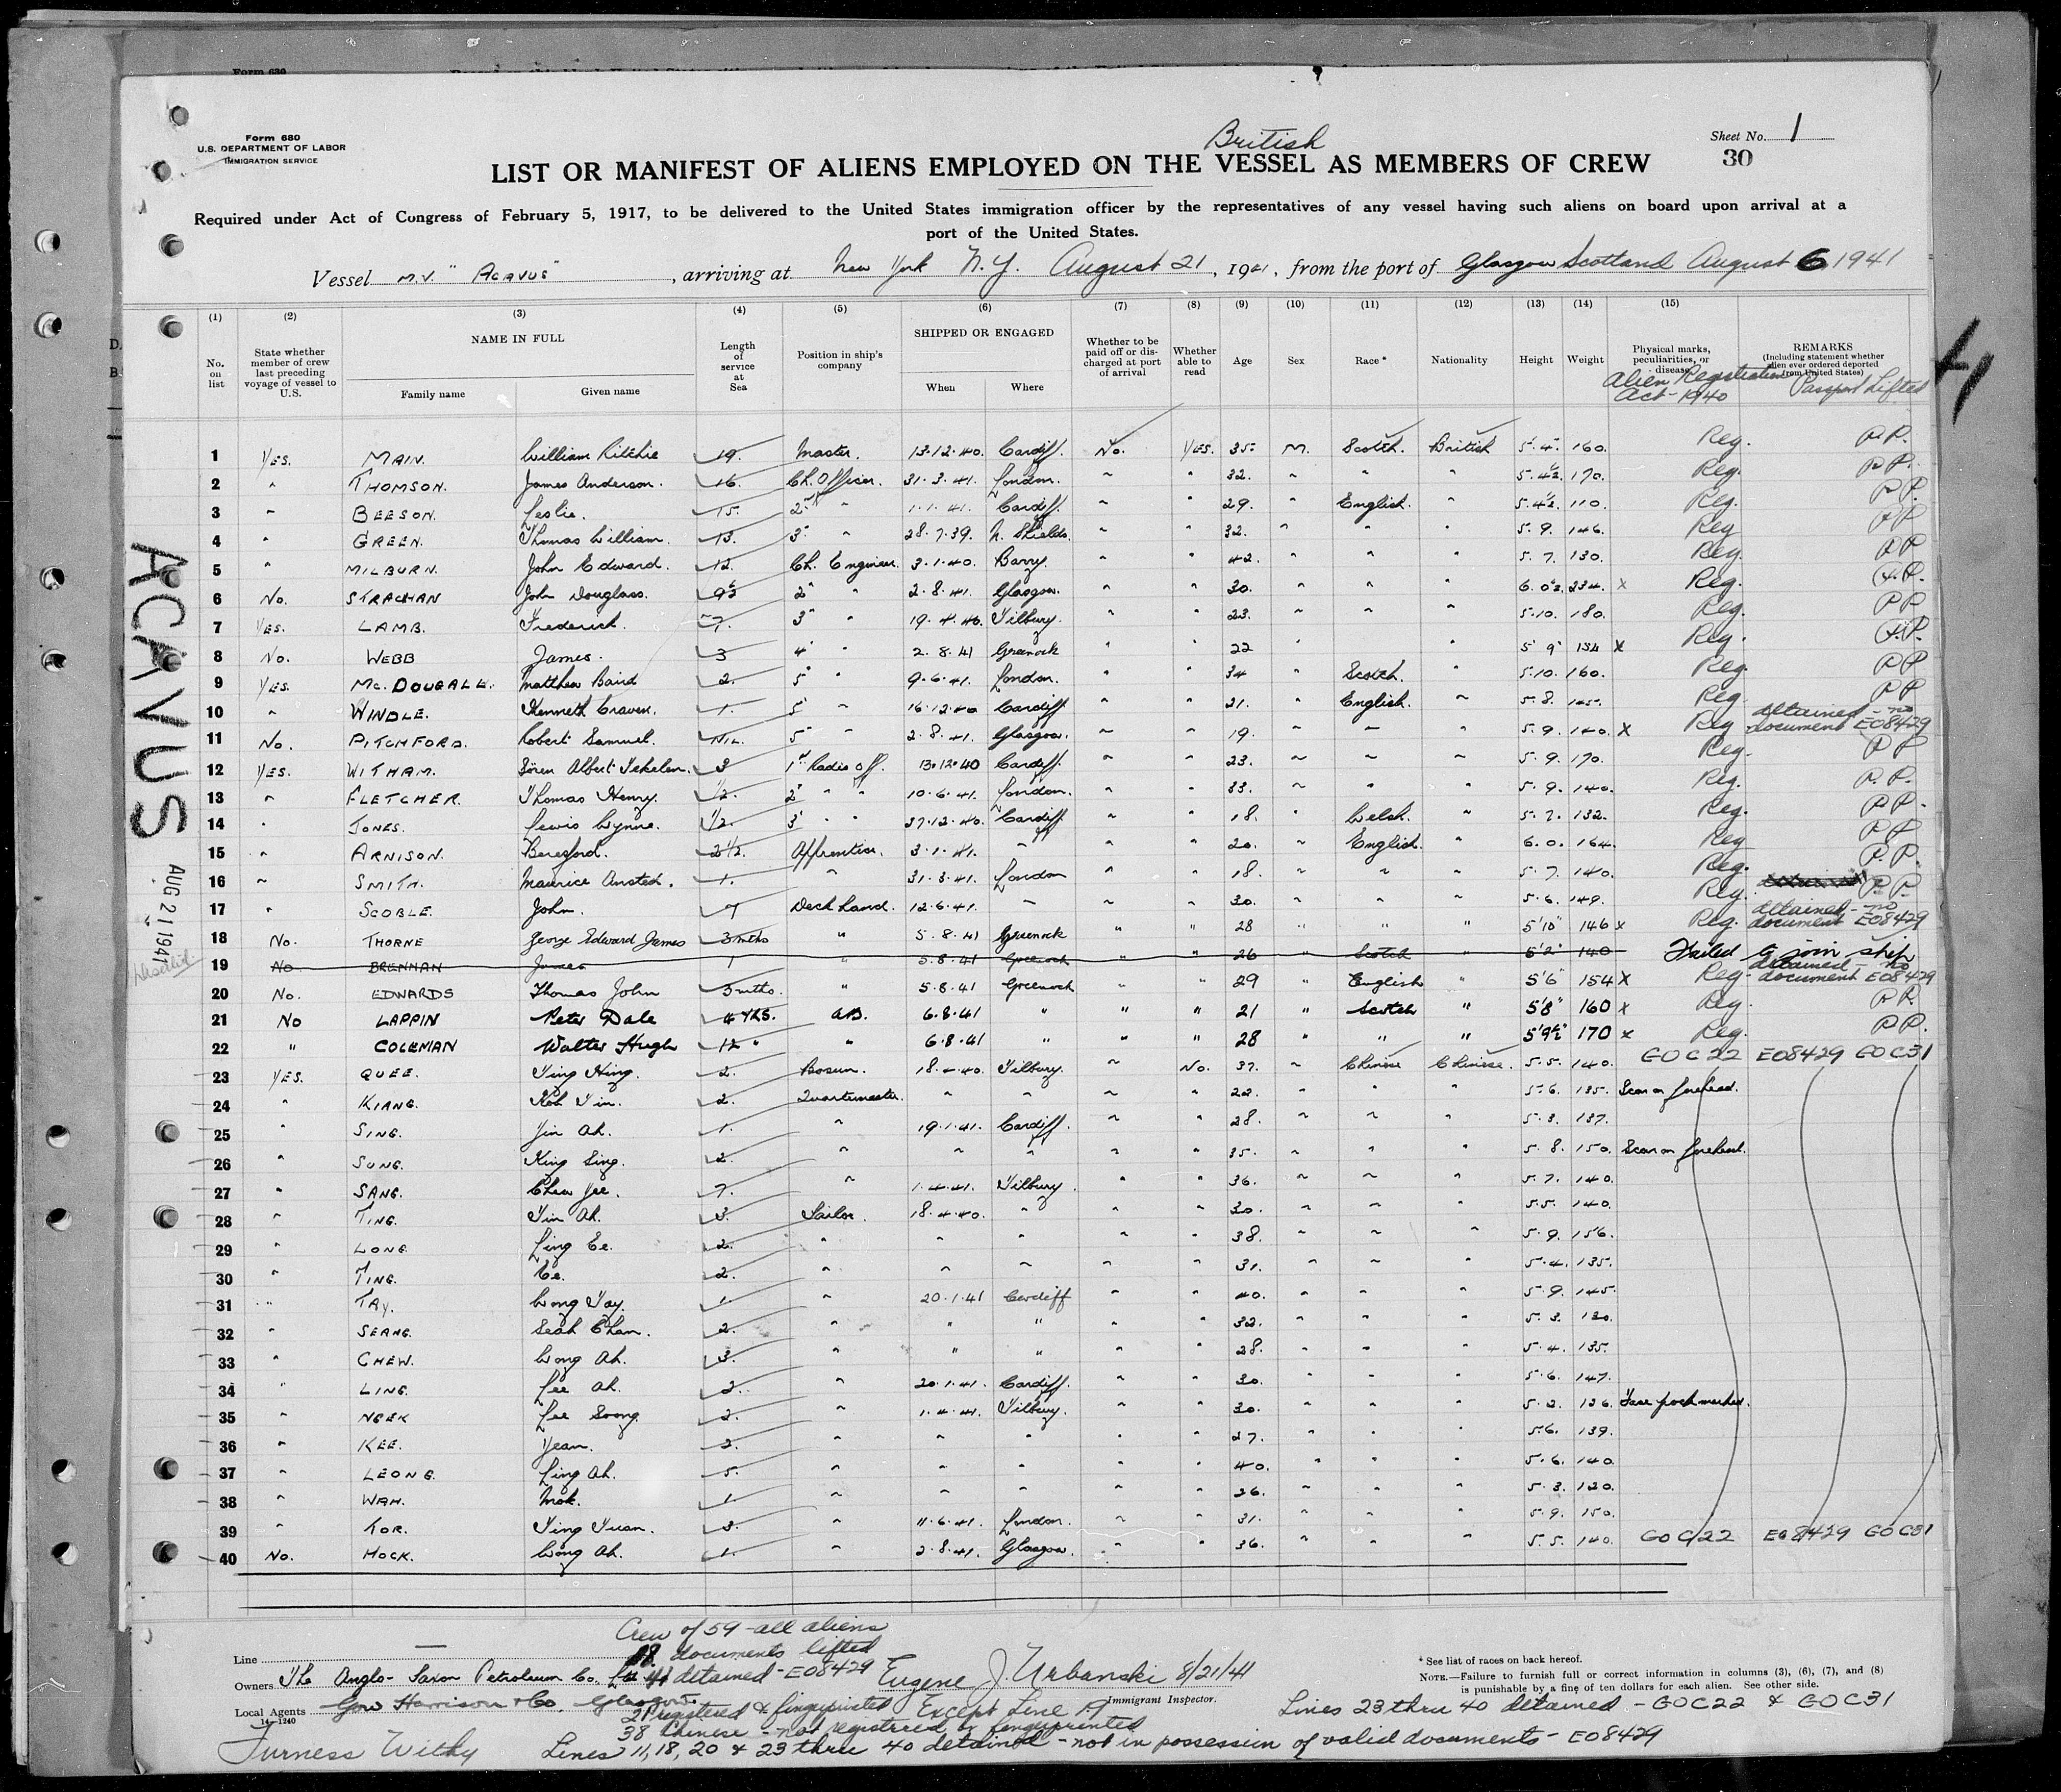 Form 680
U.S. DEPARTMENT OF LABOR
IMMIGRATION SERVICE
British
Sheet No. 1
30
LIST OR MANIFEST OF ALIENS EMPLOYED ON THE VESSEL AS MEMBERS OF CREW
Required under Act of Congress of February 5, 1917, to be delivered to the United States immigration officer by the representatives of any vessel having such aliens on board upon arrival at a
port of the United States.
Vessel M.V. "ACAVUS", arriving at New York N.Y. August 21, 1941, from the port of Glasgow Scotland August 6 1941
(1) (2) (3) (4) (5) (6) (7) (8) (9) (10) (11) (12) (13) (14) (15)
No. on list
State whether member of crew last preceding voyage of vessel to U.S.
NAME IN FULL
Family name
Given name
Length of service at Sea
Position in ship's company
SHIPPED OR ENGAGED
When
Where
Whether to be paid off or discharged at port of arrival
Whether able to read
Age
Sex
Race*
Nationality
Height
Weight
Physical marks, peculiarities, or disease
Alien Registration Act-1940
REMARKS
(Including statement whether alien ever ordered deported from United States)
Passport Lifted
1 Yes. MAIN. William Ritchie 19. Master. 13.12.40. Cardiff. No. Yes. 35. M. Scotch. British 5.4. 160. Reg. P.P.
2 " THOMSON. James Anderson. 16. Ch. Officer. 31.3.41. London. " " 32. " " " 5.4½. 170. Reg. P.P.
3 " BEESON. Leslie. 15. 2nd " 1.1.41. Cardiff. " " 29. " English. " 5.4½. 110. Reg. P.P.
4 " GREEN. Thomas William. 13. 3rd " 28.7.39. N. Shields. " " 32. " " " 5.9. 146. Reg P.P.
5 " MILBURN. John Edward. 12. Ch. Engineer. 3.1.40. Barry. " " 42. " " " 5.7. 130. Reg. P.P.
6 No. STRACHAN John Douglass. 9½ 2nd " 2.8.41. Glasgow. " " 30. " " " 6.0½. 234. x Reg. P.P.
7 Yes. LAMB. Frederick. 7. 3rd " 19.4.40. Tilbury. " " 23. " " " 5.10. 180. Reg. P.P.
8 No. WEBB James. 3 4th " 2.8.41 Greenock " " 22 " " 5 9" 154 x Reg. P.P.
9 Yes. Mc. DOUGALL. Matthew Baird 2. 5th " 9.6.41. London. " " 34 " Scotch. " 5.10. 160. Reg. P.P.
10 " WINDLE. Kenneth Craven. 1. 5th " 16.12.40 Cardiff " " 21. " English. " 5.8. 145. Reg. P.P.
11 No. PITCHFORD. Robert Samuel. NIL. 5th " 2.8.41. Glasgow. " " 19. " " " 5.9. 140. x Reg detained - no document E08429
12 Yes. WITHAM. Albert 3 1st Radio off. 13.12.40 Cardiff. " " 23. " " " 5.9. 170. Reg. P.P.
13 " FLETCHER. Thomas Henry. ½. 2nd " " 10.6.41. London. " " 33. " " " 5.9. 140. Reg. P.P.
14 " JONES. Lewis Wynne. ½. 3rd " " 12.40. Cardiff " " 18. " Welsh. " 5.7. 132. Reg. P.P.
15 " ARNISON. Beresford. 2½. Apprentice. 3.1.41. " " " 20. " English. " 6.0. 164. Reg P.P.
16 " SMITH. Maurice Ansted. 1. " 31.3.41. London " " 18. " " " 5.7. 140. Reg. P.P.
17 " SCOBLE. John. 7 Deck hand. 12.6.41. " " " 30. " " " 5.6. 149. Reg. P.P.
18 No. THORNE George Edward James 3mths " 5.8.41 Greenock " " 28 " " " 5'10" 146 x Reg. detained - no document E08429
19 No BRENNAN James 1 " 5.8.41 Greenock " " 26 " Scotch " 5'2" 140 Failed to join ship
20 No. EDWARDS Thomas John 3mths. " 5.8.41 Greenock " " 29 " English " 5'6" 154 x Reg detained - no document E08429
21 No LAPPIN Peter Dale 4 YRS. AB. 6.8.41 " " " 21 " Scotch " 5'8" 160 x Reg. P.P.
22 " COLEMAN Walter Hugh 12 " " 6.8.41 " " " 28 " " " 5'9½" 170 x Reg. P.P.
23 Yes. QUEE. Ting Hing. 2. Bosun. 18.4.40. Tilbury. " No. 37. " Chinese Chinese. 5.5. 140. GOC22 E08429 GOC31
24 " KIANG. Koh Tin. 2. Quartermaster. " " " " 22. " " " 5.6. 135. Scar on forehead.
25 " SING. Yin Ah. 1. " 19.1.41. Cardiff. " " 28. " " " 5.3. 137.
26 " SUNG. King Sing. 2. " " " " " 35. " " " 5.8. 150. Scar on forehead.
27 " SANG. Chew Yee. 7. " 1.4.41. Tilbury. " " 36. " " " 5.7. 140.
28 " TING. Yin Ah. 3. Sailor. 18.4.40. " " " 30. " " " 5.5. 140.
29 " LONG. Ling Ee. 2. " " " " " 38. " " " 5.9. 156.
30 " TING. Ee. 2. " " " " " 31. " " " 5.4. 135.
31 " TAY. Wong Tay. 1. " 20.1.41 Cardiff " " 40. " " " 5.9. 145.
32 " SEANG. Seah Chan. 2. " " " " " 32. " " " 5.3. 130.
33 " CHEW. Wong Ah. 3. " " " " " 28. " " " 5.4. 135.
34 " LING. Lee Ah. 2. " 20.1.41. Cardiff. " " 30. " " " 5.6. 147.
35 " NGEK Lee Soong 2. " 1.4.41. Tilbury. " " 30. " " " 5.2. 126. Face pock marked.
36 " KEE. Yean. 2. " " " " " 27. " " " 5.6. 139.
37 " LEONG. Ling Ah. 5. " " " " " 40. " " " 5.6. 140.
38 " WAH. Mok. 1. " " " " " 26. " " " 5.3. 120.
39 " TOR. Ting Yuan. 3. " 11.6.41. London. " " 31. " " " 5.9. 150.
40 No. HOCK. Wong Ah. 1. " 2.8.41. Glasgow. " " 36. " " " 5.5. 140. GOC22 E08429 GOC31
ACAVUS
AUG 21 1941
Deserted.
Crew of 59 - all aliens
18 documents lifted
41 detained - E08429
Line
Owners The Anglo-Saxon Petroleum Co. Ltd
Eugene J. Urbanski 8/21/41
Immigrant Inspector.
Local Agents Gow Harrison & Co. Glasgow.
14-1240
21 registered & fingerprinted Except Line 19
38 Chinese - not registered or fingerprinted
Furness Withy
Lines 11, 18, 20 & 23 thru 40 detained - not in possession of valid documents - E08429
* See list of races on back hereof.
NOTE.—Failure to furnish full or correct information in columns (3), (6), (7), and (8)
is punishable by a fine of ten dollars for each alien. See other side.
Lines 23 thru 40 detained - GOC22 & GOC31